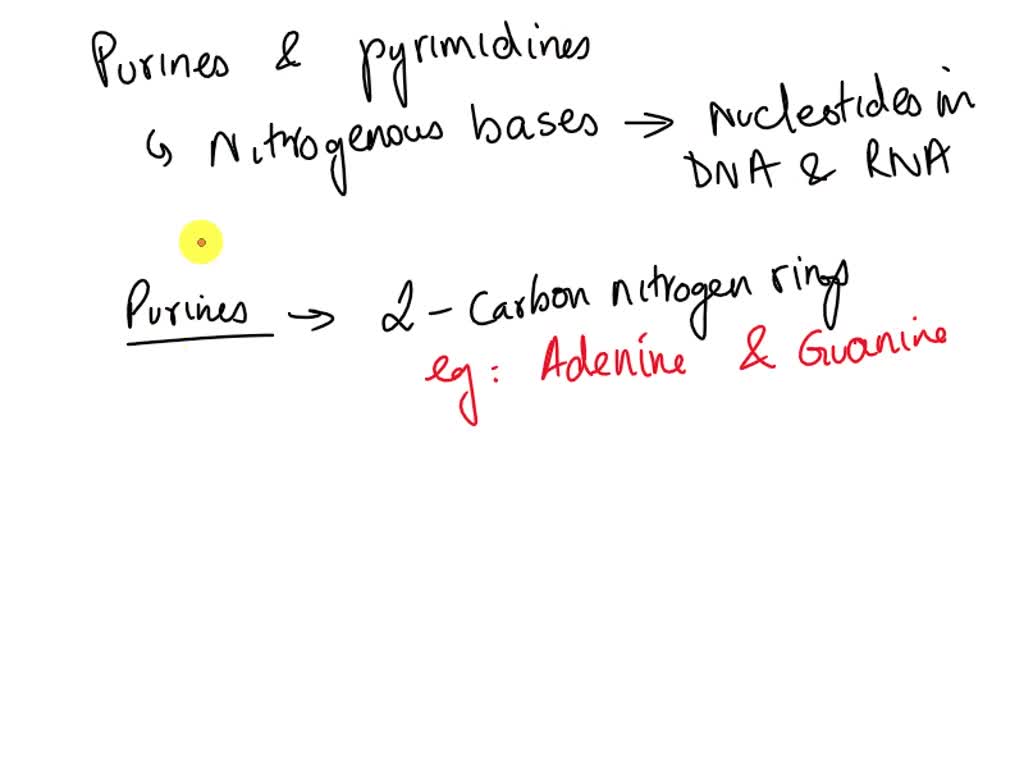 Purines & pyrimidines
↳ Nitrogenous bases → Nucleotides in
DNA & RNA
Purines → 2 - Carbon nitrogen rings
eg: Adenine & Guanine